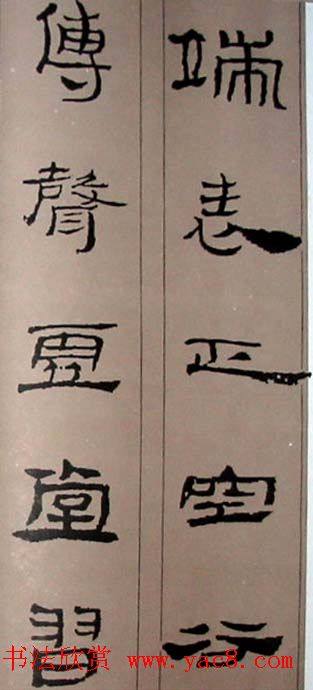 端表正空
傳聲虛堂習
书法欣赏 www.yac8.com